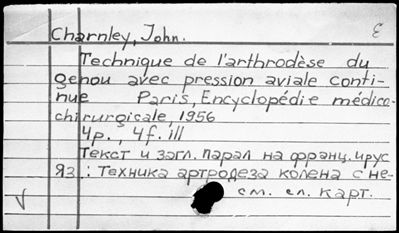 Charnley, John. E
Technique de l'arthrodèse du
genou avec pression aviale conti-
nue Paris, Encyclopédie médico-
chirurgicale, 1956
4p., 4f. ill
Текст и загл. парал на франц. ирус
Яз.: Техника артродеза колена с не-
см. сл. карт.